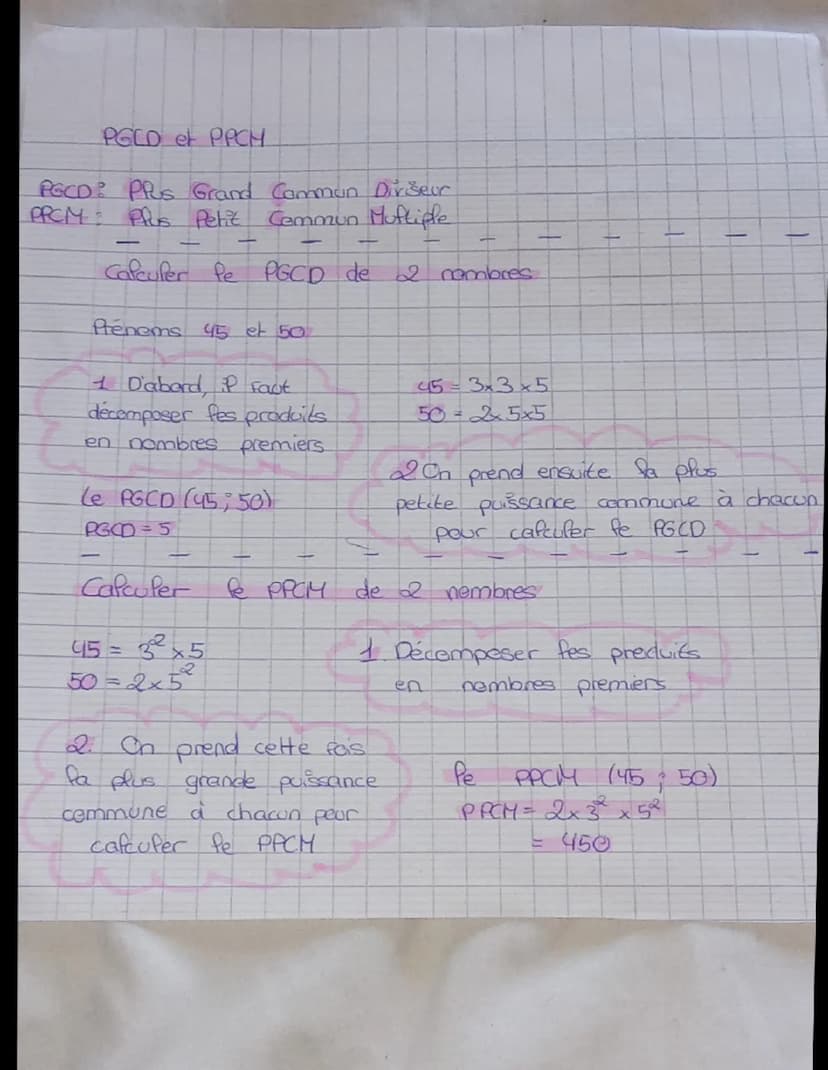 PGCD et PPCM
PGCD: Plus Grand Commun Diviseur
PPCM: Plus Petit Commun Multiple
Calculer le PGCD de 2 nombres
Prenoms 45 et 50
1 D'abord, il faut
décomposer les produits
en nombres premiers
45 = 3×3×5
50 = 2×5×5
2 On prend ensuite la plus
petite puissance commune à chacun
pour calculer le PGCD
Le PGCD (45 ; 50)
PGCD = 5
Calculer le PPCM de 2 nombres
45 = 3² × 5
50 = 2 × 5²
1. Décomposer les produits
en nombres premiers
2. On prend cette fois
la plus grande puissance
commune à chacun pour
calculer le PPCM
le PPCM (45 ; 50)
PPCM = 2 × 3² × 5²
= 450